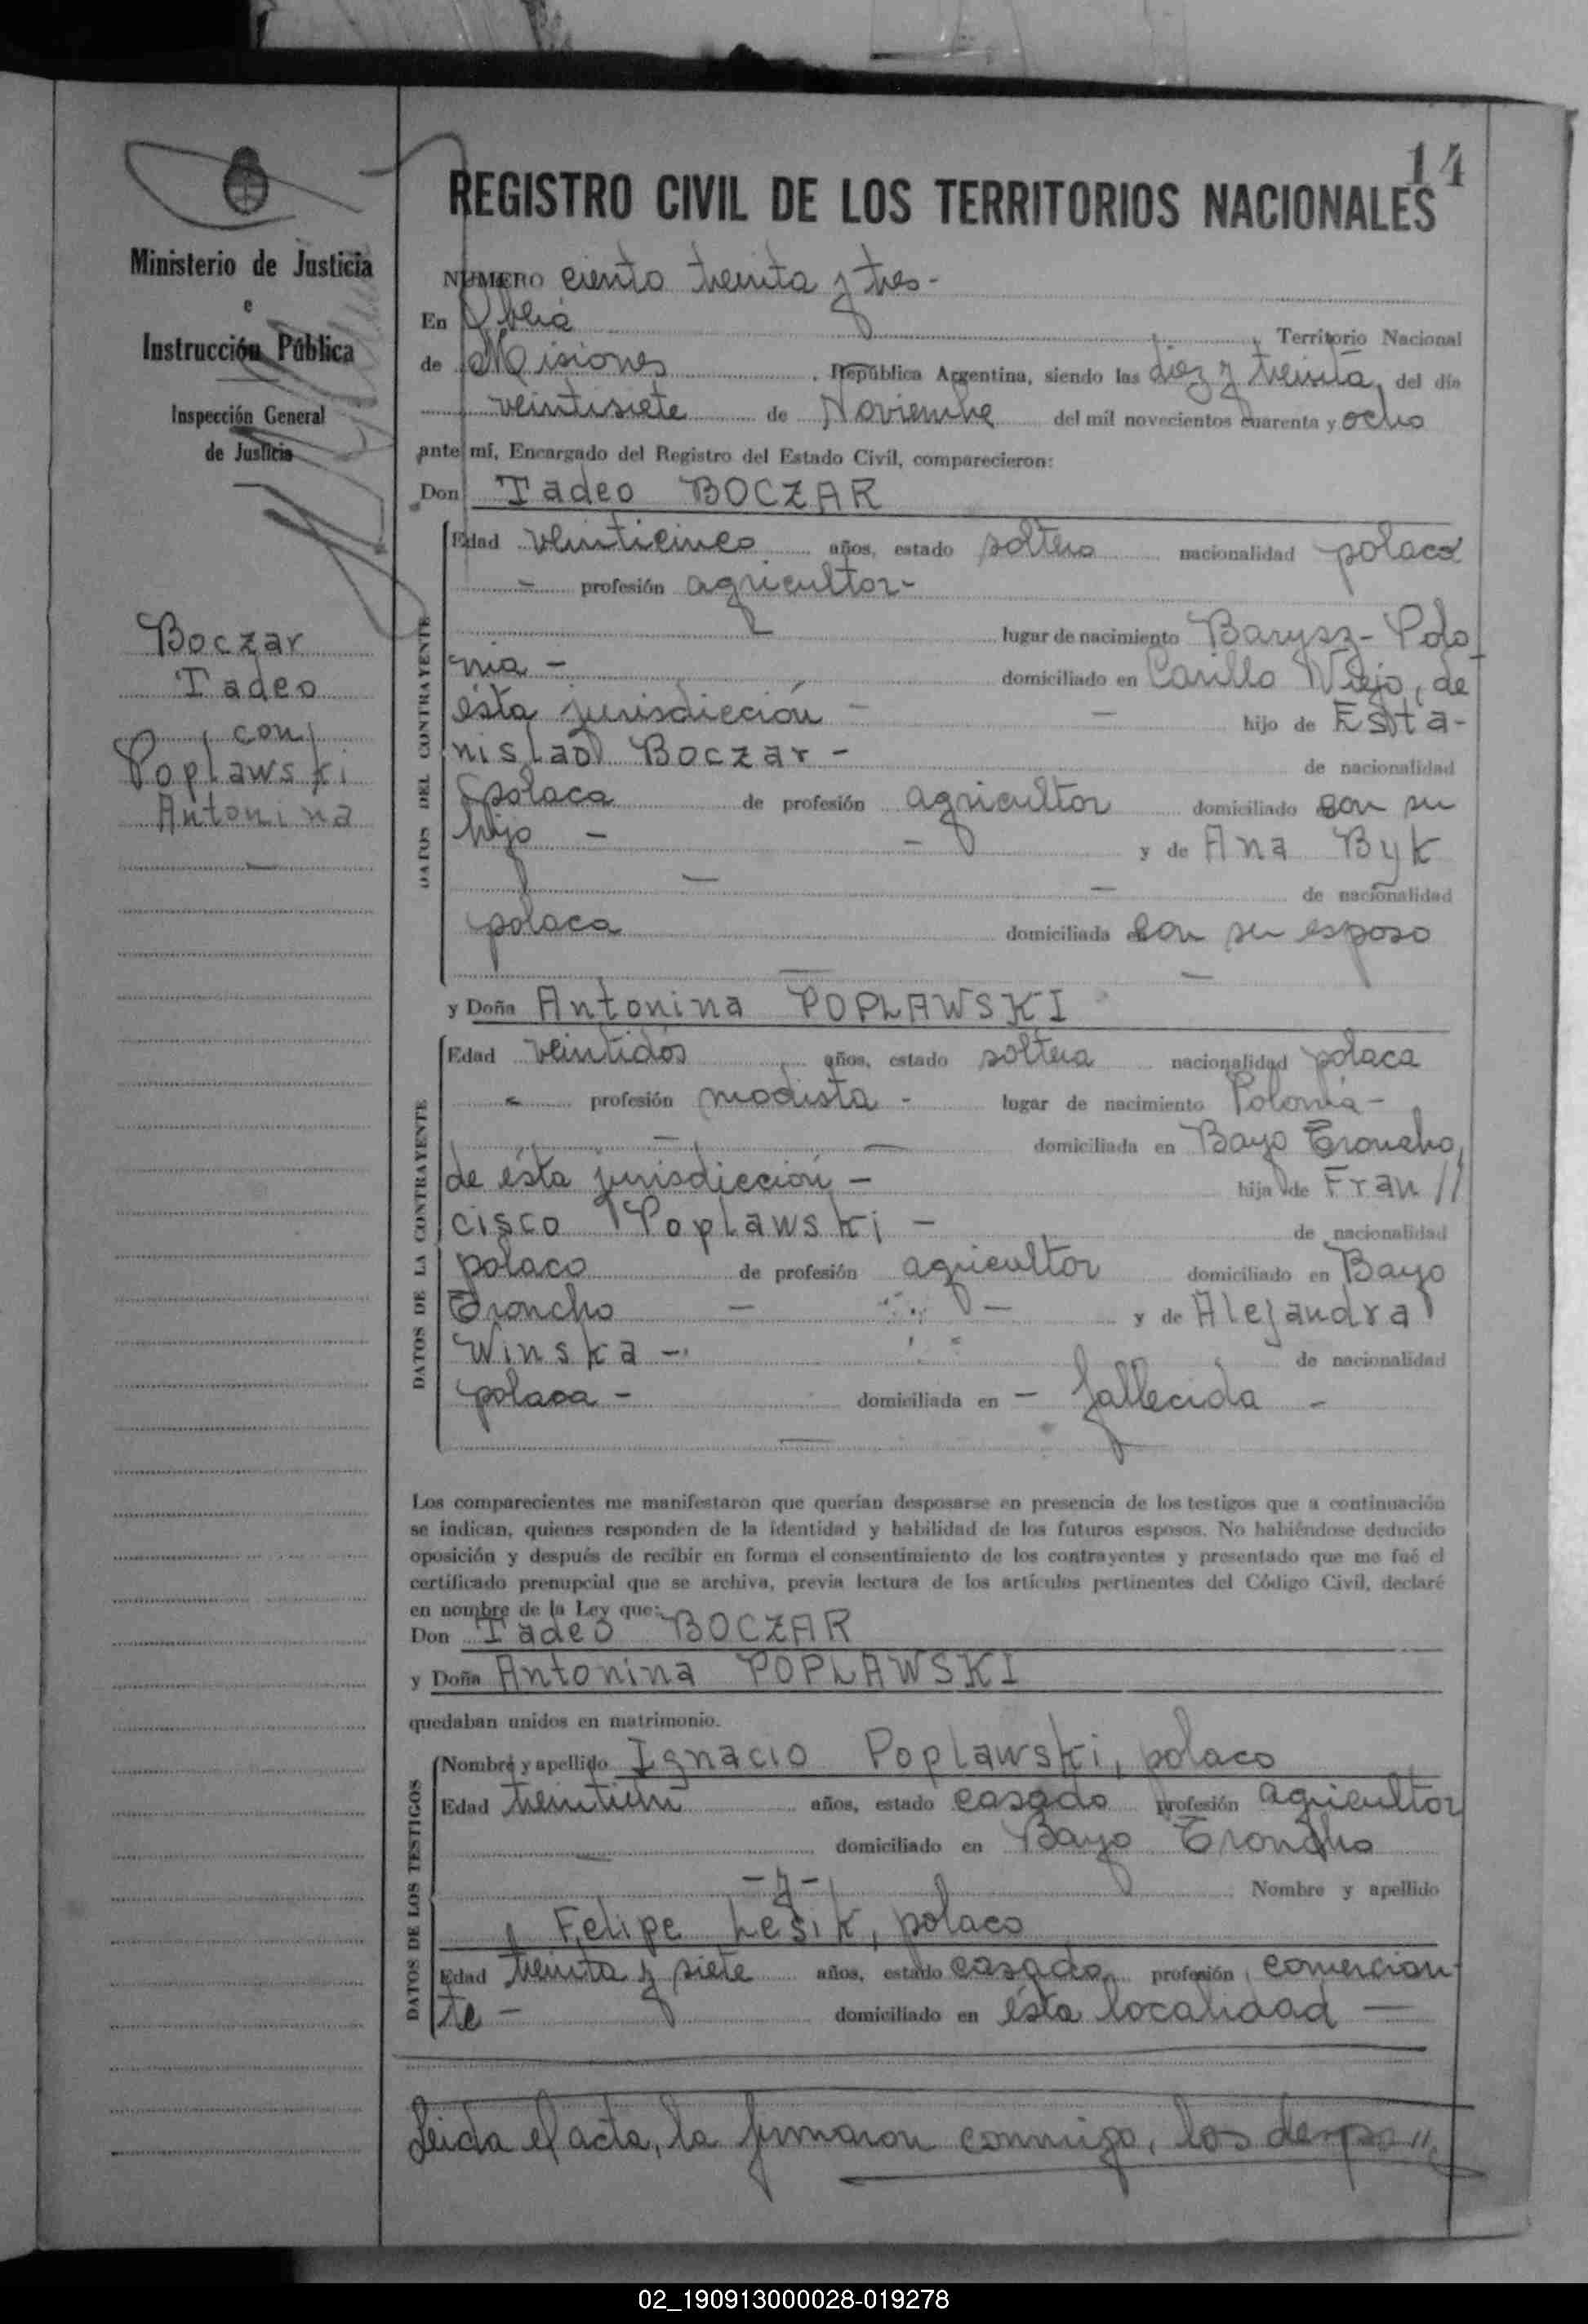 14
REGISTRO CIVIL DE LOS TERRITORIOS NACIONALES
Ministerio de Justicia
e
Instrucción Pública
Inspección General
de Justicia
Boczar
Tadeo
con
Poplawski
Antonina
NUMERO ciento treinta y tres-
En Oberá Territorio Nacional
de Misiones, República Argentina, siendo las diez y treinta, del día
veintisiete de Noviembre del mil novecientos cuarenta y ocho
ante mí, Encargado del Registro del Estado Civil, comparecieron:
Don Tadeo BOCZAR
DATOS DEL CONTRAYENTE
Edad veinticinco años, estado soltero nacionalidad polaco
- profesión agricultor-
lugar de nacimiento Barysz-Polo
nia - domiciliado en Carillo Viejo, de
ésta jurisdicción - - hijo de Esta-
nislao Boczar - de nacionalidad
polaca de profesión agricultor domiciliado con su
hijo - - y de Ana Byk
- - de nacionalidad
polaca domiciliada con su esposo
y Doña Antonina POPLAWSKI
DATOS DE LA CONTRAYENTE
Edad veintidós años, estado soltera nacionalidad polaca
- profesión modista - lugar de nacimiento Polonia-
domiciliada en Bayo Troncho,
de ésta jurisdicción - hija de Fran//
cisco Poplawski - de nacionalidad
polaco de profesión agricultor domiciliado en Bayo
Troncho - - y de Alejandra
Winska - de nacionalidad
polaca - domiciliada en - fallecida -
Los comparecientes me manifestaron que querían desposarse en presencia de los testigos que a continuación
se indican, quienes responden de la identidad y habilidad de los futuros esposos. No habiéndose deducido
oposición y después de recibir en forma el consentimiento de los contrayentes y presentado que me fué el
certificado prenupcial que se archiva, previa lectura de los artículos pertinentes del Código Civil, declaré
en nombre de la Ley que:
Don Tadeo BOCZAR
y Doña Antonina POPLAWSKI
quedaban unidos en matrimonio.
DATOS DE LOS TESTIGOS
Nombre y apellido Ignacio Poplawski, polaco
Edad años, estado casado profesión agricultor
domiciliado en Bayo Troncho
-y- Nombre y apellido
Felipe Lesik, polaco
Edad treinta y siete años, estado casado, profesión comercian-
te - domiciliado en ésta localidad -
Leida el acta, la firmaron conmigo, los despo//
02_190913000028-019278